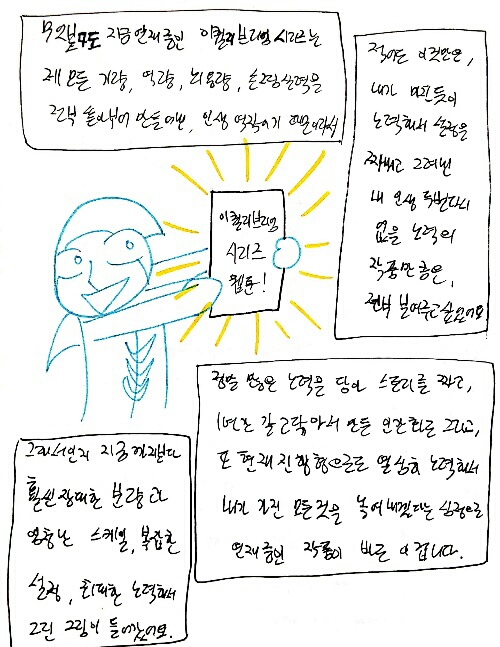 무엇보다도 지금 연재중인 이퀄리브리엄 시리즈는
제 모든 기량, 역량, 뇌용량, 손그림실력을
전부 쏟아부어 만들어낸, 인생 역작이기 때문이라서
적어도 이것만은,
내가 미친듯이
노력해서 설정을
짜내고 그려낸
내 인생 두번다시
없을 노력의
작품만큼은,
전부 보여주고 싶었어요
이퀄리브리엄
시리즈
웹툰-!
정말 많은 노력을 담아 스토리를 짜고,
1년간 갈고닦아서 만든 인관화로 그리고,
또 현재진행형으로도 열심히 노력해서
내가 가진 모든것을 녹여내겠다는 심정으로
연재중인 작품이 바로 이겁니다.
그래서인지 지금까지보다
훨씬 장대한 분량과
엄청난 스케일, 복잡한
설정, 최대한 노력해서
그린 그림이 들어갔어요.